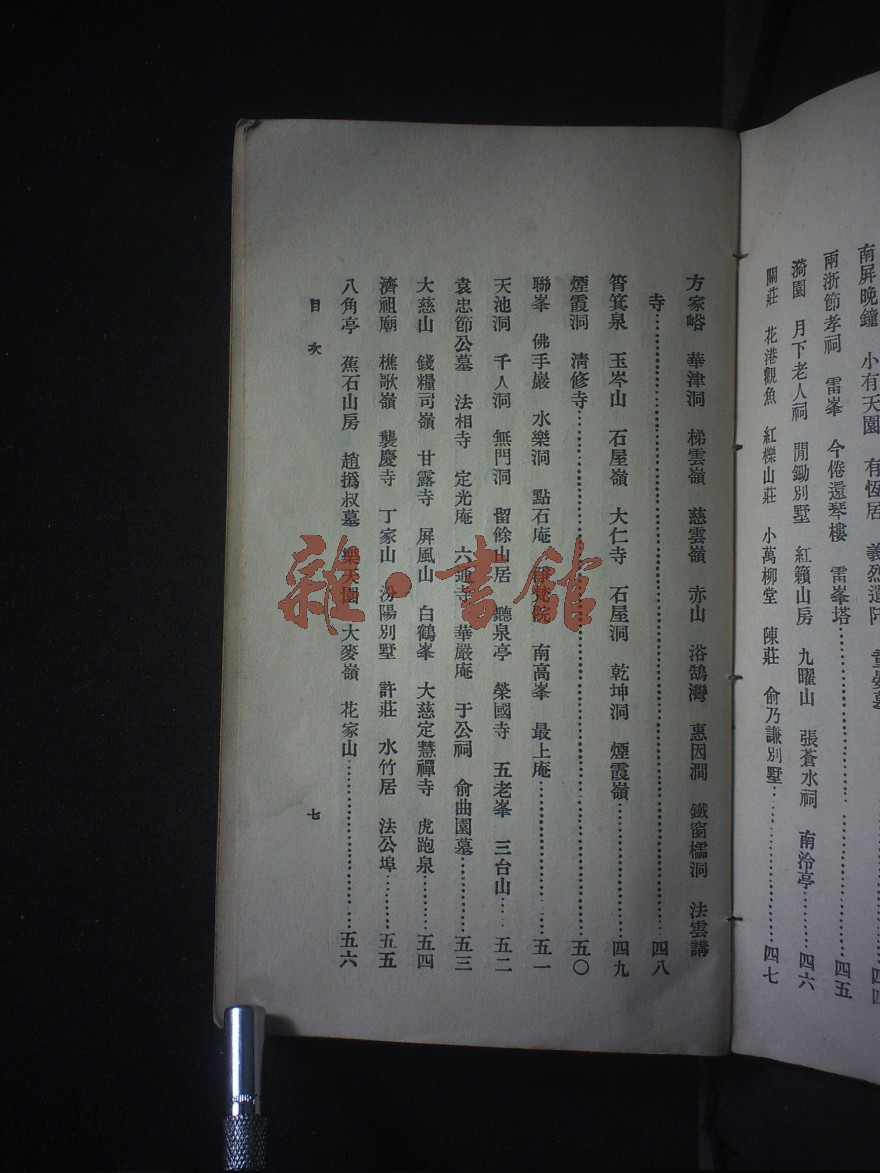 南屏晚鐘　小有天園　有恆居　義烈遺阡
兩浙節孝祠　雷峯　今倦還琴樓　雷峯塔……………四五
漪園　月下老人祠　閒鋤別墅　紅籟山房　九曜山　張蒼水祠　南泠亭……四六
關莊　花港觀魚　紅櫟山莊　小萬柳堂　陳莊　俞乃謙別墅……………四七
方家峪　華津洞　梯雲嶺　慈雲嶺　赤山　浴鵠灣　惠因澗　鐵窗櫺洞　法雲講
寺……………四八
筲箕泉　玉岑山　石屋嶺　大仁寺　石屋洞　乾坤洞　煙霞嶺……………四九
煙霞洞　清修寺……………五〇
聯峯　佛手巖　水樂洞　點石庵　　南高峯　最上庵……………五一
天池洞　千人洞　無門洞　留餘山居　聽泉亭　榮國寺　五老峯　三台山……五二
袁忠節公墓　法相寺　定光庵　六通寺　華嚴庵　于公祠　俞曲園墓……………五三
大慈山　錢糧司嶺　甘露寺　屏風山　白鶴峯　大慈定慧禪寺　虎跑泉……………五四
濟祖廟　樵歌嶺　襲慶寺　丁家山　汾陽別墅　許莊　水竹居　法公埠……………五五
八角亭　蕉石山房　趙撝叔墓　樂天園　大麥嶺　花家山……………五六
目次
七
雜·書館